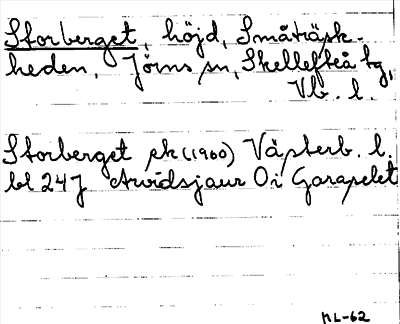 Storberget, höjd, Småträsk-
heden, Jörns sn, Skellefteå tg,
Vb. l.
Storberget sk (1960) Västerb. l.
bl 247 Arvidsjaur Öi
NL-62